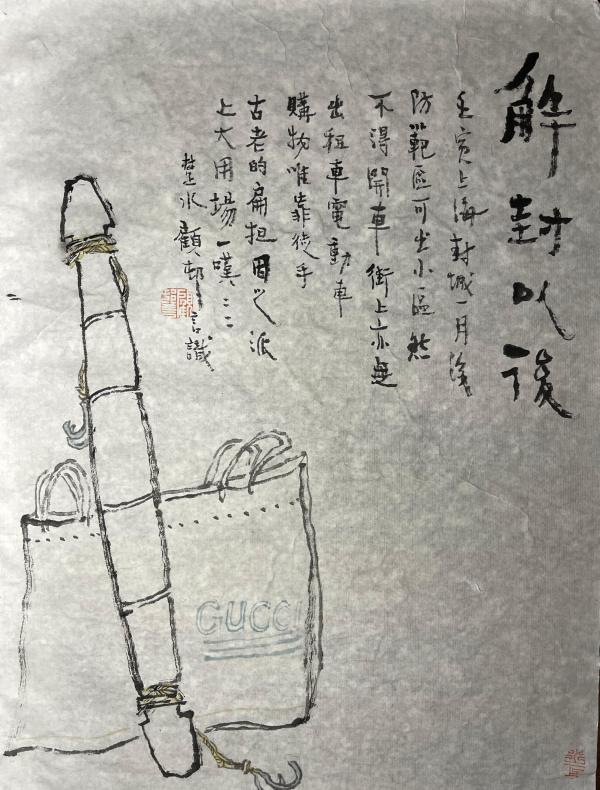 解封以後
壬寅上海封城一月後
防範區可出小區然
不得開車街上亦無
出租車電動車
購物唯靠徒手
古老的扁担因之派
上大用場一嘆二二
水顧邨言識
GUCCI